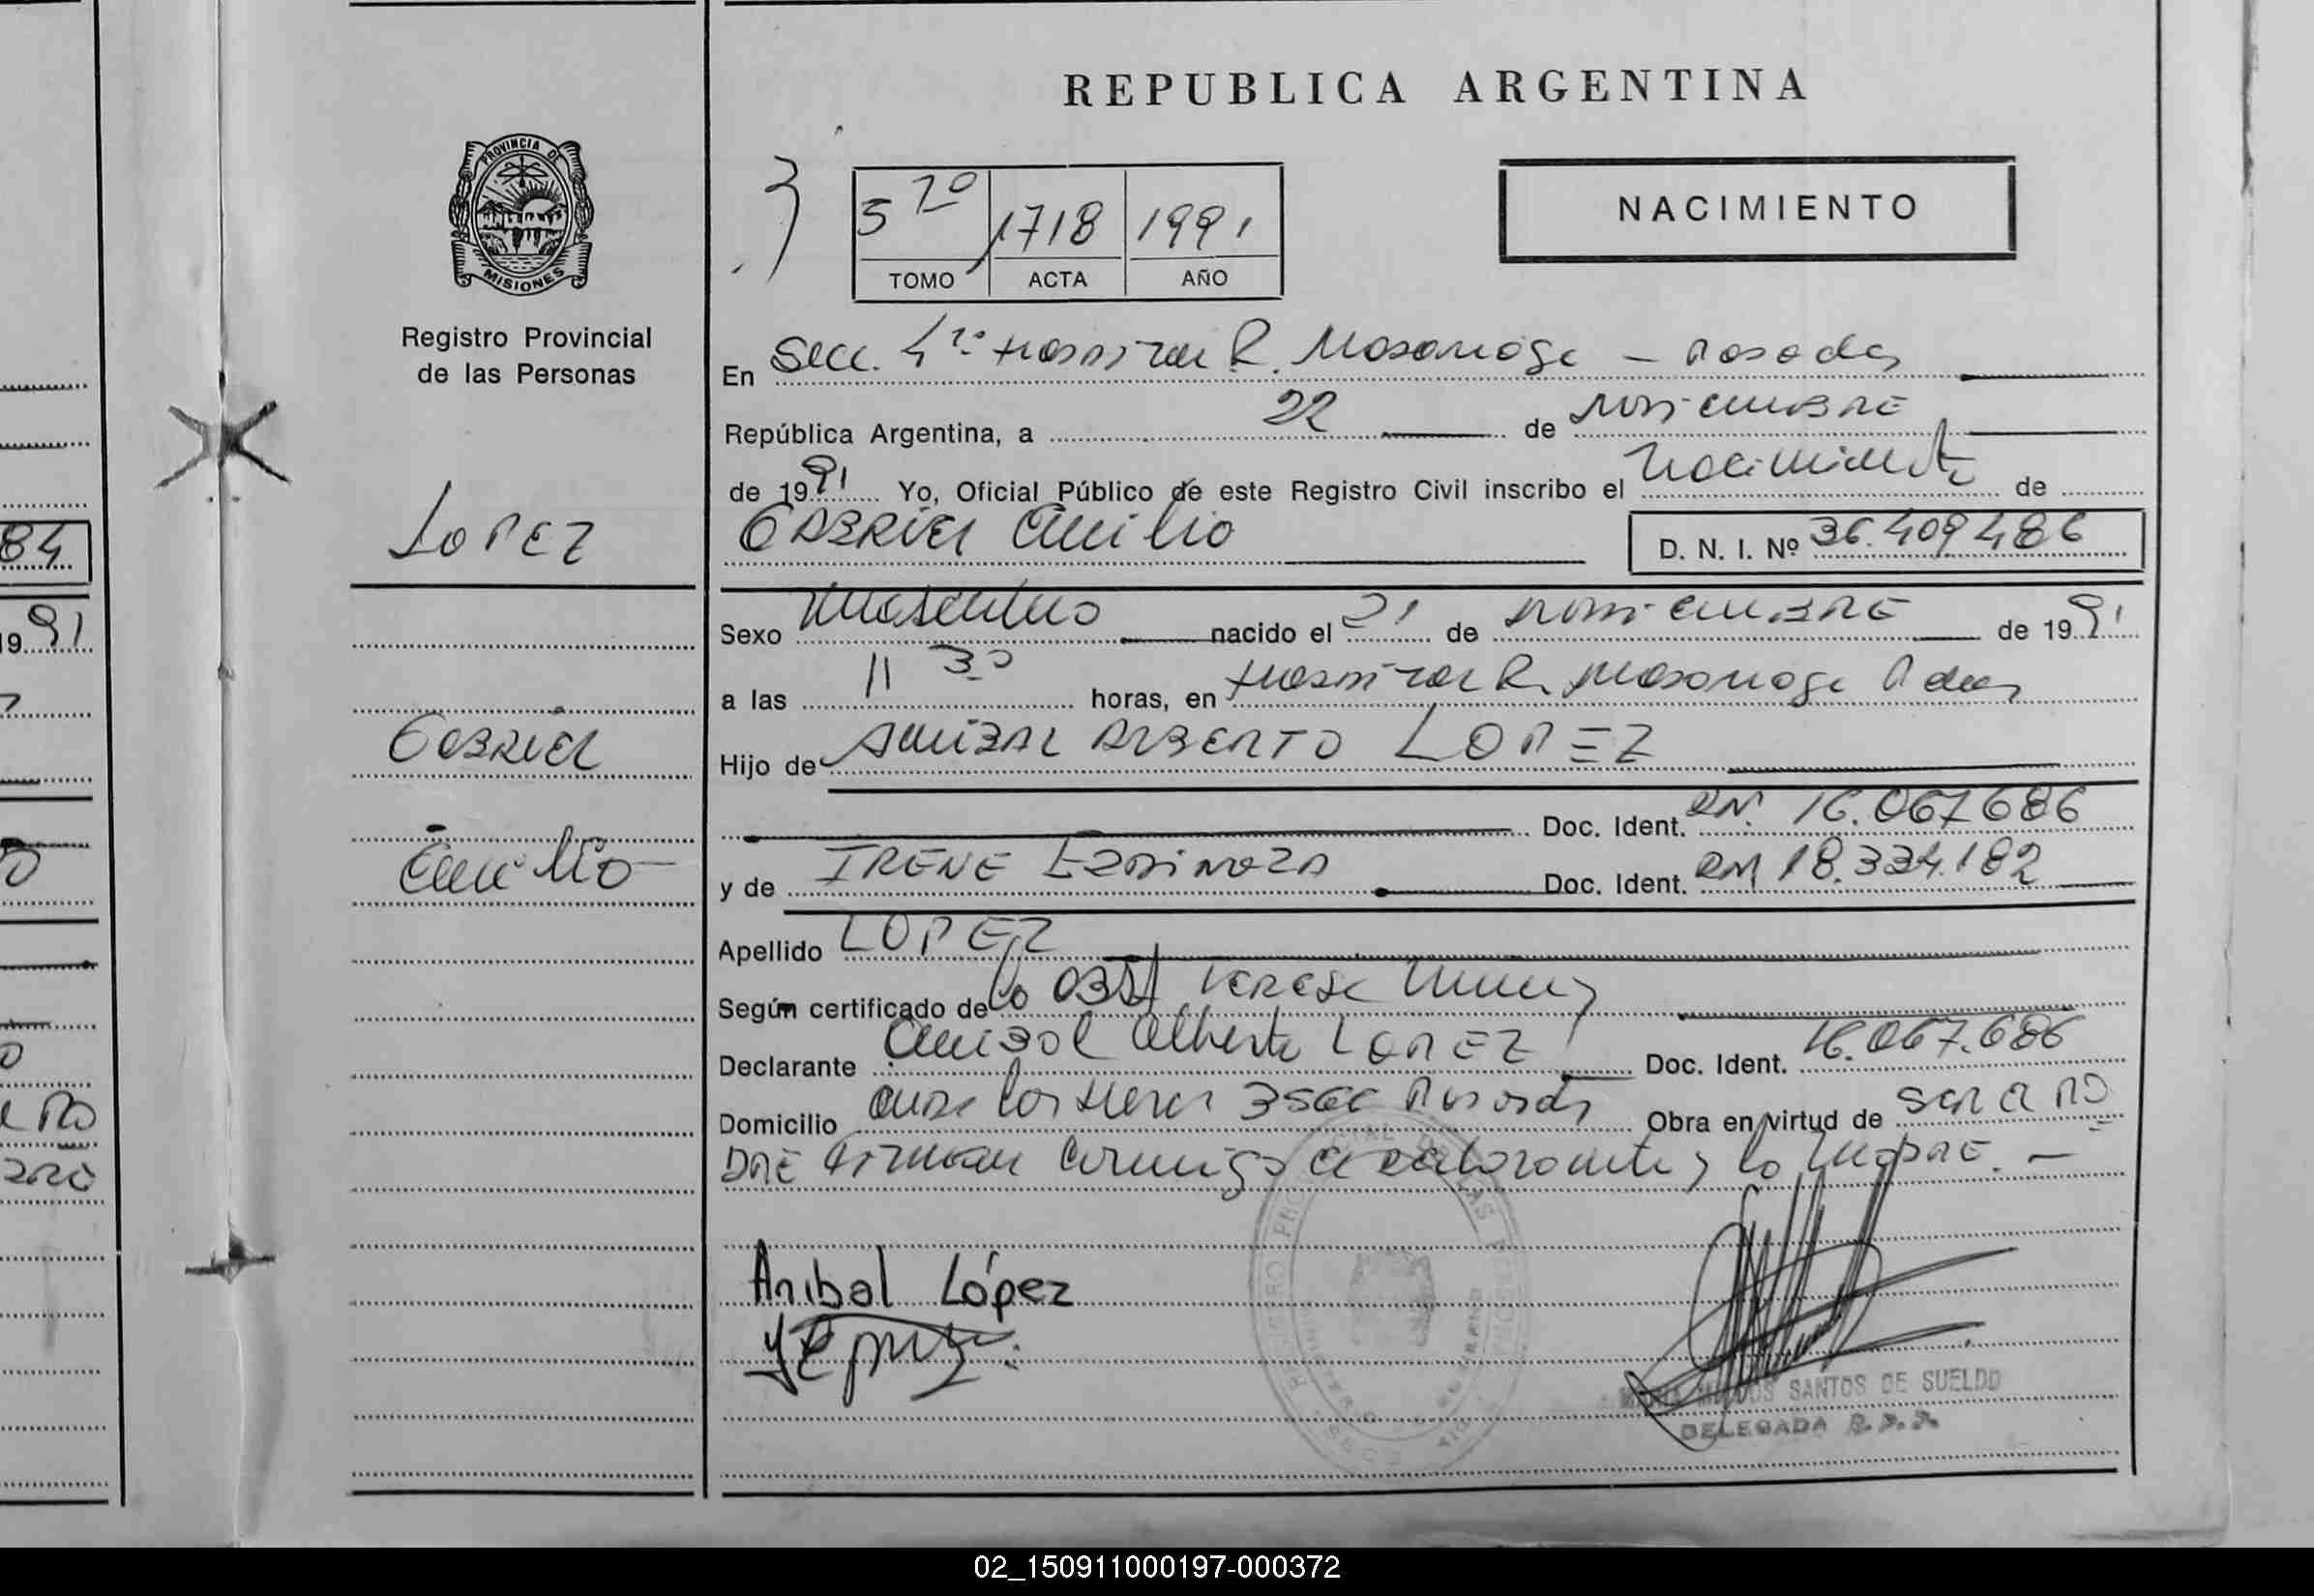 REPUBLICA ARGENTINA
PROVINCIA DE
MISIONES
Registro Provincial
de las Personas
5 to 1718 1991
TOMO ACTA AÑO
NACIMIENTO
En Secc. 4 Hospital R. Posadas
República Argentina, a 22 de NOVIEMBRE
de 1991 Yo, Oficial Público de este Registro Civil inscribo el Nacimiento de
GABRIEL Emilio D. N. I. Nº 36.409486
LOPEZ
Sexo Masculino nacido el 21 de NOVIEMBRE de 1991
a las 11 30 horas, en Hospital R.
GABRIEL
Hijo de ANIBAL ALBERTO LOPEZ
Doc. Ident. 16.067686
Emilio
y de IRENE ESPINOZA Doc. Ident. 18.334.182
Apellido LOPEZ
Según certificado de la OBST Teresa
Declarante Anibal Alberto LOPEZ Doc. Ident. 16.067.686
Domicilio Posadas Obra en virtud de SER EL PA
DRE Firman conmigo el declarante y la MADRE.
Aníbal López
SANTOS DE SUELDO
DELEGADA R.P.P.
84
1991
02_150911000197-000372